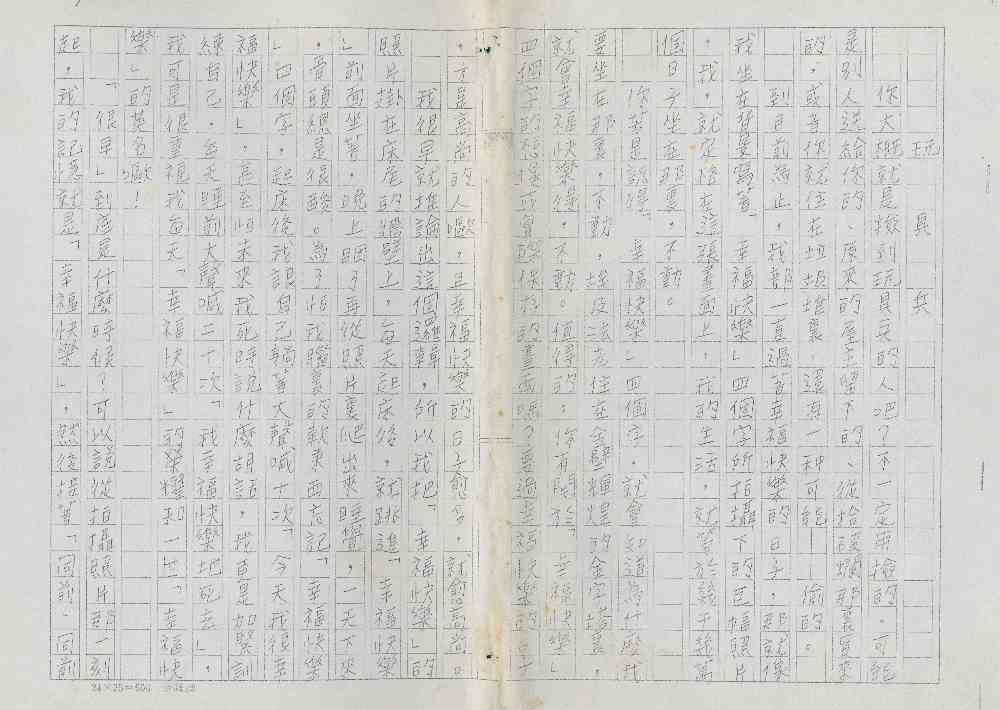 玩具兵
你大概就是撿到玩具兵的人吧？不一定再撿的。可能
是別人送給你的、原來的屋主留下的、從垃圾爛那裏要來
的。或者你就住在垃圾堆裏。還有一種可能——偷的。
到目前為止。我都一直過著幸福快樂的日子。那就像
我坐在背景寫著「幸福快樂」四個字所拍攝下的巨幅照片
。我。就定格在這張畫面上。我的生活。就等於幾千幾萬
個日子坐在那裏。不動。
你若是說得「幸福快樂」四個字。就會知道為什麼我
要坐在那裏。不動。埃及法老住在金碧輝煌的金字塔裏。
就會幸福快樂得。不動。值得的。你有關於「幸福快樂」
四個字的想像或實際保存的畫面嗎？要過幸福快樂的日子
。才是高尚的人嘛。且幸福快樂的日子愈多。就愈高尚。
我很早就推論出這個邏輯。所以我把「幸福快樂」的
照片掛在床尾的牆壁上。每天起床後。就跳進「幸福快樂
」前面坐著。晚上睏了再從照片裏爬出來睡覺。一天下來
。骨頭總是很酸。為了怕我腦裏的軟東西忘記「幸福快樂
」四個字。起床後我說自己躺著大聲喊十次「今天我很幸
福快樂」。甚至怕未來我死時說什麼胡話。我更是加緊訓
練自己。每天睡前大聲喊二十次「我幸福快樂地死去」。
我可是很重視我每天「幸福快樂」的榮耀和一世「幸福快
樂」的英名嘛！
「很早」到底是什麼時候？可以說從拍攝照片那一刻
起。我的記憶就是「幸福快樂」。然後接著「同前、同前
24×25=600